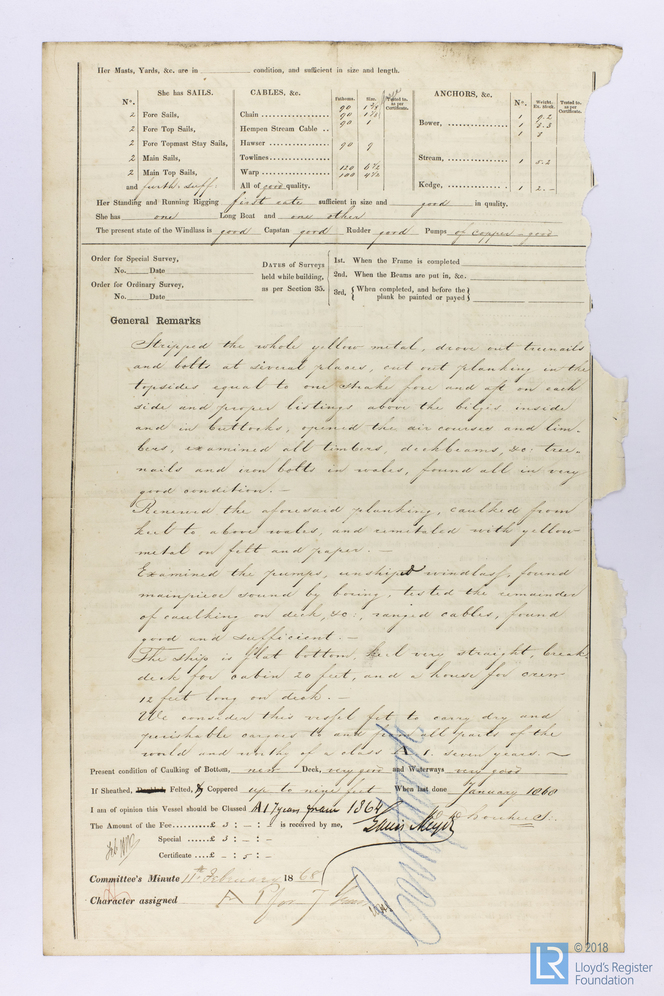 Her Masts, Yards, &c. are in condition, and sufficient in size and length.
She has SAILS.
N°.
2 Fore Sails,
2 Fore Top Sails,
2 Fore Topmast Stay Sails,
2 Main Sails,
2 Main Top Sails,
and furth. suff.
CABLES, &c.
Fathoms. Size. Tested to. as per Certificate.
Chain 90
90
Hempen Stream Cable .. 90 1
Hawser 90 9
Towlines
Warp 120 6½
100 4½
All of good quality.
ANCHORS, &c.
N°. Weight. Ex. Stock. Tested to. as per Certificate.
Bower, 1 9.2
1 8.3
1 8
Stream, 1 5.2
Kedge, 1 2.-
Her Standing and Running Rigging first rate sufficient in size and good in quality.
She has one Long Boat and one other
The present state of the Windlass is good Capstan good Rudder good Pumps of copper - good
Order for Special Survey,
No. Date
Order for Ordinary Survey,
No. Date
DATES of Surveys
held while building,
as per Section 35.
1st. When the Frame is completed
2nd. When the Beams are put in, &c.
3rd. { When completed, and before the plank be painted or payed }
General Remarks
Stripped the whole yellow metal, drove out treenails
and bolts at several places, cut out planking in the
topsides equal to one strake fore and aft on each
side and proper listings above the bilges inside
and in buttocks, opened the air courses and tim-
bers, examined all timbers, deckbeams, &c. tree-
nails and iron bolts in wales, found all in very
good condition. -
Renewed the aforesaid planking, caulked from
keel to above wales, and remetaled with yellow
metal on felt and paper. -
Examined the pumps, unshiped windlass, found
mainpiece sound by boring, tested the remainder
of caulking on deck, &c., ranged cables, found
good and sufficient. -
The ship is flat bottom, keel very straight, break
deck for cabin 20 feet, and a house for crew
12 feet long on deck. -
We consider this vessel fit to carry dry and
perishable cargoes to and from all parts of the
world and worthy of a class A 1. seven years. ~
Present condition of Caulking of Bottom, new Deck, very good and Waterways very good
If Sheathed, Doubled, Felted, & Coppered up to nine feet When last done January 1868
I am of opinion this Vessel should be Classed A1 7 years from 1864
The Amount of the Fee £ 3 : - : - is received by me,
Special £ 3 : - : -
Certificate £ - : 5 : -
Committee's Minute 11th February 1868
Character assigned A 1 for 7 Years
LR © 2018
Lloyd's Register
Foundation